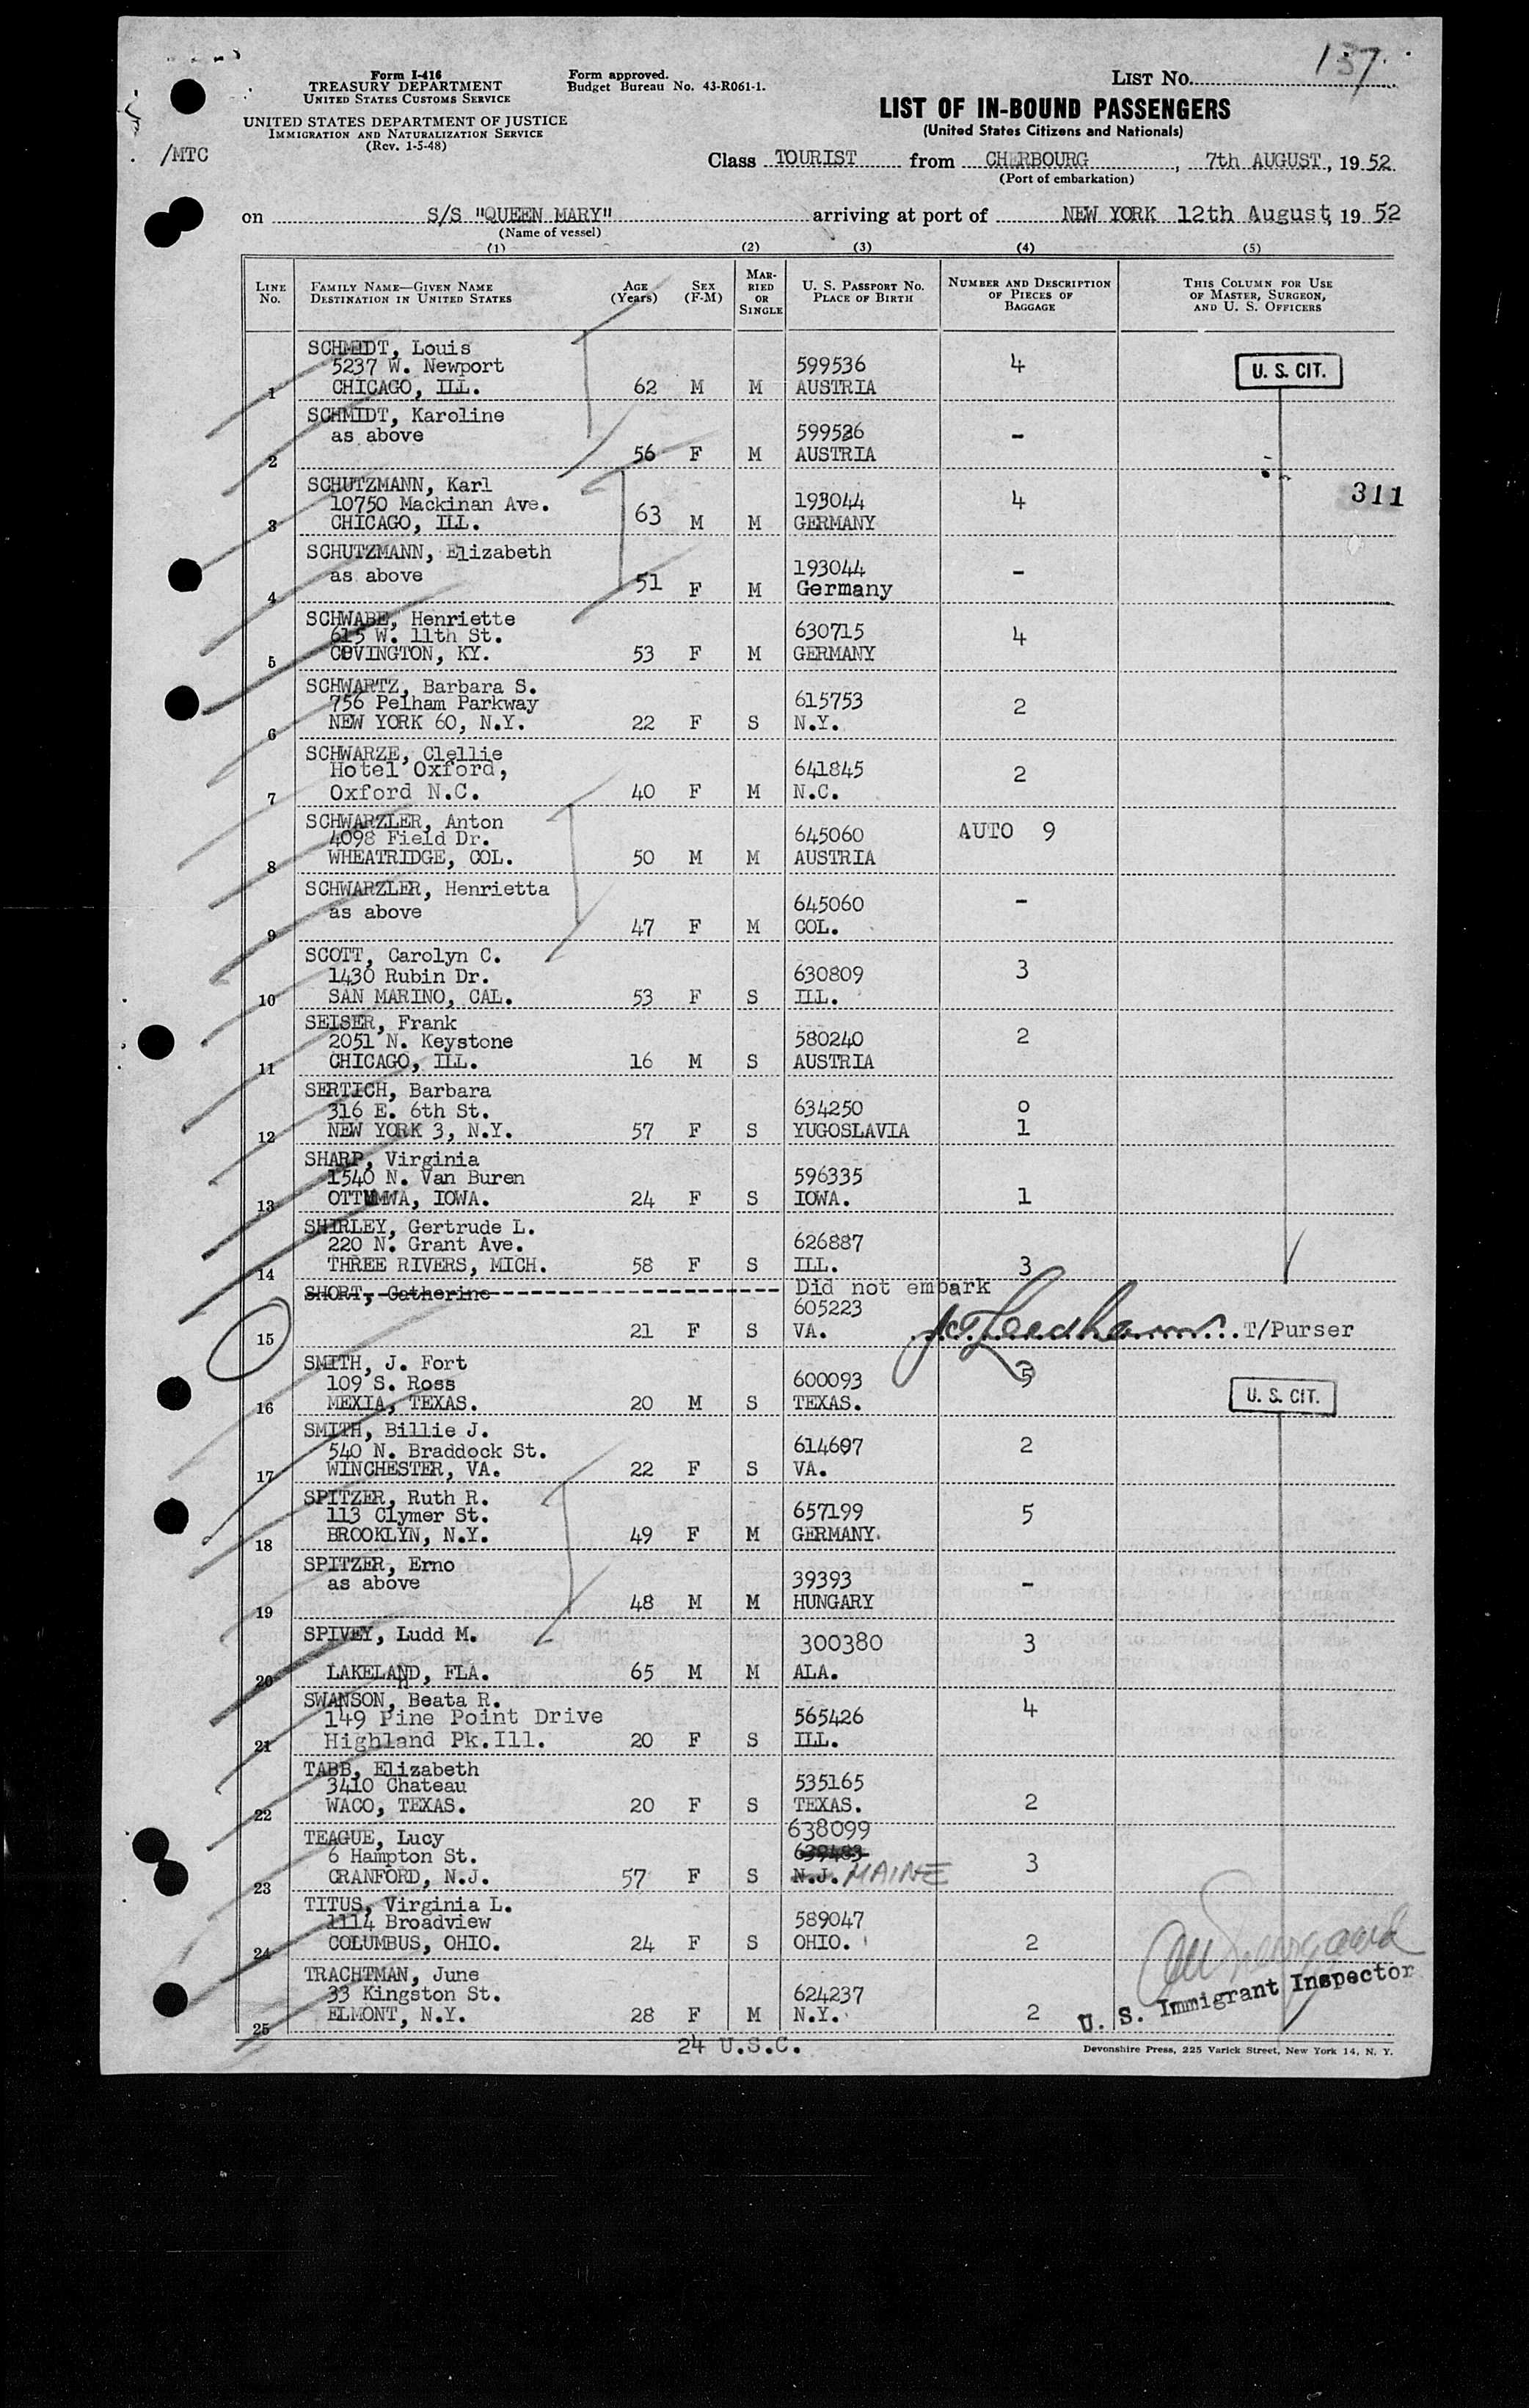 137
Form I-416
TREASURY DEPARTMENT
UNITED STATES CUSTOMS SERVICE
UNITED STATES DEPARTMENT OF JUSTICE
IMMIGRATION AND NATURALIZATION SERVICE
(Rev. 1-5-48)
Form approved.
Budget Bureau No. 43-R061-1.
LIST NO.
LIST OF IN-BOUND PASSENGERS
(United States Citizens and Nationals)
/MTC
Class TOURIST from CHERBOURG, 7th AUGUST, 1952
(Port of embarkation)
on S/S "QUEEN MARY" arriving at port of NEW YORK 12th August, 1952
(Name of vessel)
(1) (2) (3) (4) (5)
LINE NO. FAMILY NAME—GIVEN NAME DESTINATION IN UNITED STATES AGE (Years) SEX (F-M) MARRIED OR SINGLE U. S. PASSPORT NO. PLACE OF BIRTH NUMBER AND DESCRIPTION OF PIECES OF BAGGAGE THIS COLUMN FOR USE OF MASTER, SURGEON, AND U. S. OFFICERS
SCHMIDT, Louis
5237 W. Newport 599536 4 U. S. CIT.
1 CHICAGO, ILL. 62 M M AUSTRIA
SCHMIDT, Karoline
as above 599526 -
2 56 F M AUSTRIA
SCHUTZMANN, Karl
10750 Mackinan Ave. 193044 4 311
3 CHICAGO, ILL. 63 M M GERMANY
SCHUTZMANN, Elizabeth
as above 193044 -
4 51 F M Germany
SCHWABE, Henriette
615 W. 11th St. 630715 4
5 COVINGTON, KY. 53 F M GERMANY
SCHWARTZ, Barbara S.
756 Pelham Parkway 615753 2
6 NEW YORK 60, N.Y. 22 F S N.Y.
SCHWARZE, Clellie
Hotel Oxford, 641845 2
7 Oxford N.C. 40 F M N.C.
SCHWARZLER, Anton
4098 Field Dr. 645060 AUTO 9
8 WHEATRIDGE, COL. 50 M M AUSTRIA
SCHWARZLER, Henrietta
as above 645060 -
9 47 F M COL.
SCOTT, Carolyn C.
1430 Rubin Dr. 630809 3
10 SAN MARINO, CAL. 53 F S ILL.
SEISER, Frank
2051 N. Keystone 580240 2
11 CHICAGO, ILL. 16 M S AUSTRIA
SERTICH, Barbara
316 E. 6th St. 634250 0
12 NEW YORK 3, N.Y. 57 F S YUGOSLAVIA 1
SHARP, Virginia
1540 N. Van Buren 596335
13 OTTUMWA, IOWA. 24 F S IOWA. 1
SHIRLEY, Gertrude L.
220 N. Grant Ave. 626887
14 THREE RIVERS, MICH. 58 F S ILL. 3
SHORT, Catherine Did not embark
605223
15 21 F S VA. T/Purser
SMITH, J. Fort
109 S. Ross 600093 5 U. S. CIT.
16 MEXIA, TEXAS. 20 M S TEXAS.
SMITH, Billie J.
540 N. Braddock St. 614697 2
17 WINCHESTER, VA. 22 F S VA.
SPITZER, Ruth R.
113 Clymer St. 657199 5
18 BROOKLYN, N.Y. 49 F M GERMANY.
SPITZER, Erno
as above 39393 -
19 48 M M HUNGARY
SPIVEY, Ludd M. 300380 3
20 LAKELAND, FLA. 65 M M ALA.
SWANSON, Beata R.
149 Pine Point Drive 565426 4
21 Highland Pk.Ill. 20 F S ILL.
TABB, Elizabeth
3410 Chateau 535165
22 WACO, TEXAS. 20 F S TEXAS. 2
TEAGUE, Lucy 638099
6 Hampton St. 639483 3
23 CRANFORD, N.J. 57 F S N.J. MAINE
TITUS, Virginia L.
1114 Broadview 589047
24 COLUMBUS, OHIO. 24 F S OHIO. 2
TRACHTMAN, June
33 Kingston St. 624237
25 ELMONT, N.Y. 28 F M N.Y. 2
U. S. Immigrant Inspector
24 U.S.C.
Devonshire Press, 225 Varick Street, New York 14, N. Y.